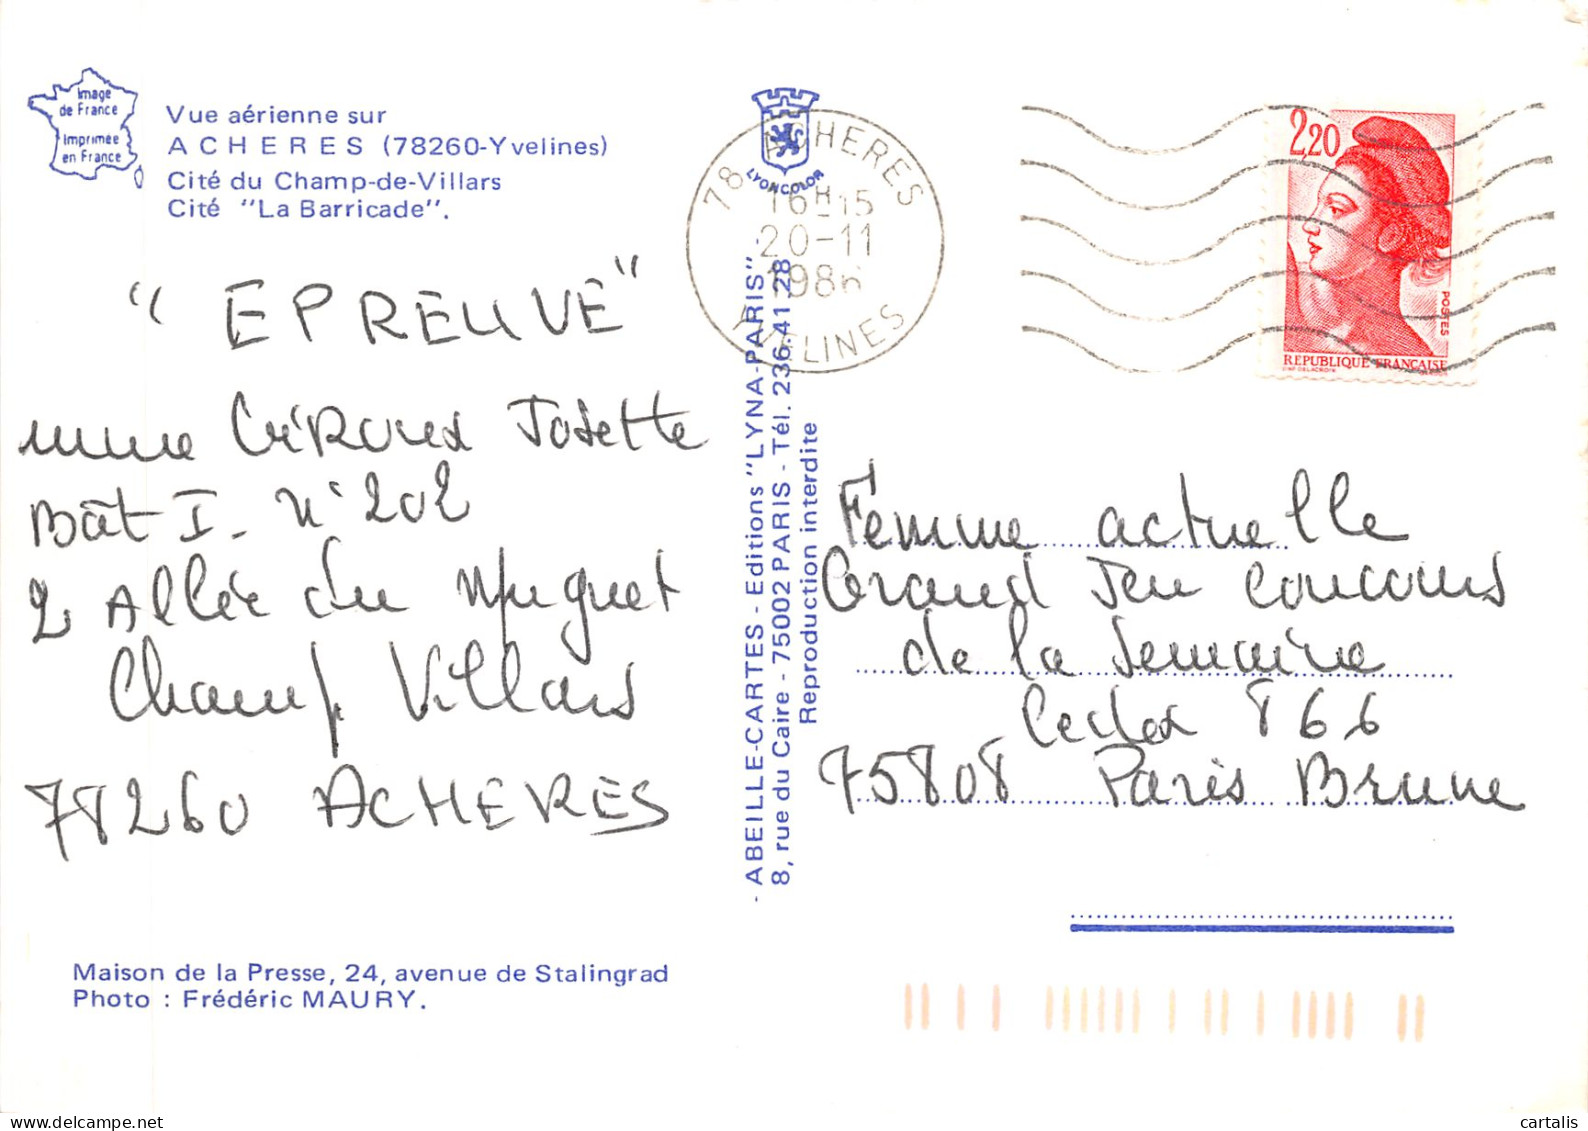 Image
de France
Imprimée
en France
Vue aérienne sur
ACHERES (78260-Yvelines)
Cité du Champ-de-Villars
Cité "La Barricade".
"EPREUVE"
mme Josette
Bât I. N° 202
2 Allée du Muguet
Champ Villars
78260 ACHERES
Maison de la Presse, 24, avenue de Stalingrad
Photo : Frédéric MAURY.
LYONCOLOR
- ABEILLE-CARTES - Editions "LYNA-PARIS".
8, rue du Caire - 75002 PARIS - Tél. 236.41.28
Reproduction interdite
78 ACHERES
16H15
20-11
1986
YVELINES
2,20
POSTES
REPUBLIQUE FRANÇAISE
Femme actuelle
Grand Jeu concours
de la Semaine
Cedex 866
75808 Paris Brune
cartalis
www.delcampe.net